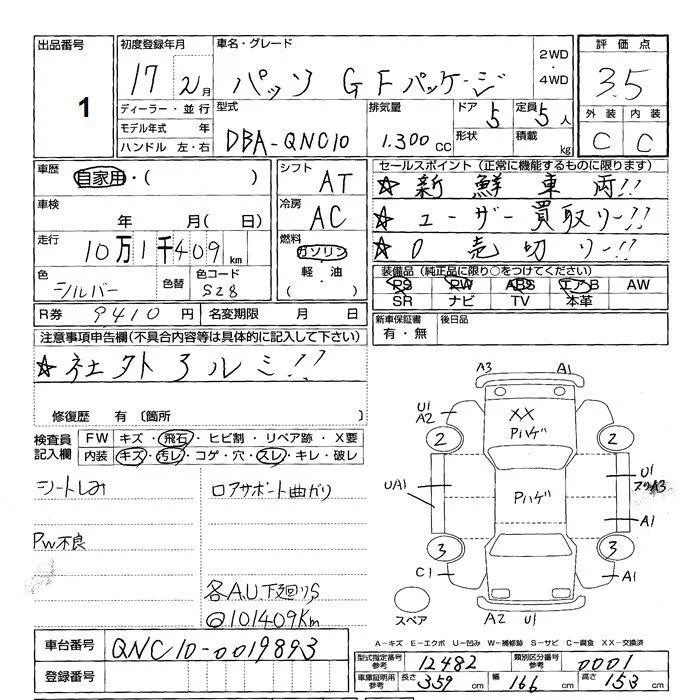 出品番号
1
初度登録年月
17 2月
車名・グレード
パッソ G Fパッケージ
2WD
・
4WD
評価点
3.5
外装 内装
C C
ディーラー・並行
モデル年式 年
ハンドル 左・右
型式
DBA-QNC10
排気量
1.300cc
ドア
5
定員
5人
形状
積載
kg
車歴
自家用・( )
車検
年 月( 日)
走行
10万1千409km
色
シルバー
色替
色コード
S28
シフト
AT
冷房
AC
燃料
ガソリン
軽・油
( )
セールスポイント(正常に機能するものに限ります)
☆ 新鮮車両!!
☆ ユーザー買取リー!!
☆ 0売切リー!!
装備品(純正品に限り○をつけてください)
PS PW ABS エアB AW
SR ナビ TV 本革
R券 9410円
名変期限 月 日
新車保証書
有・無
後日品
注意事項申告欄(不具合内容等は具体的に記入して下さい)
☆社外アルミ!!
修復歴 有〔箇所 〕
検査員
記入欄
FW キズ・飛石・ヒビ割・リペア跡・X要
内装 キズ・汚レ・コゲ・穴・スレ・キレ・破レ
シートしみ
ロアサポート曲がり
PW不良
各A.U下廻りS
@101409Km
A3 A1
U1
A2
XX
Pハゲ
2 2
UA1
Pハゲ
U1
A3
A1
3 3
C1
A1
スペア
A2 U1
車台番号
QNC10-0019893
登録番号
A-キズ E-エクボ U-凹み W-補修跡 S-サビ C-腐食 XX-交換済
型式指定番号
参考
12482
類別区分番号
参考
0001
車庫証明用
参考
長さ 359cm
幅 166cm
高さ 153cm